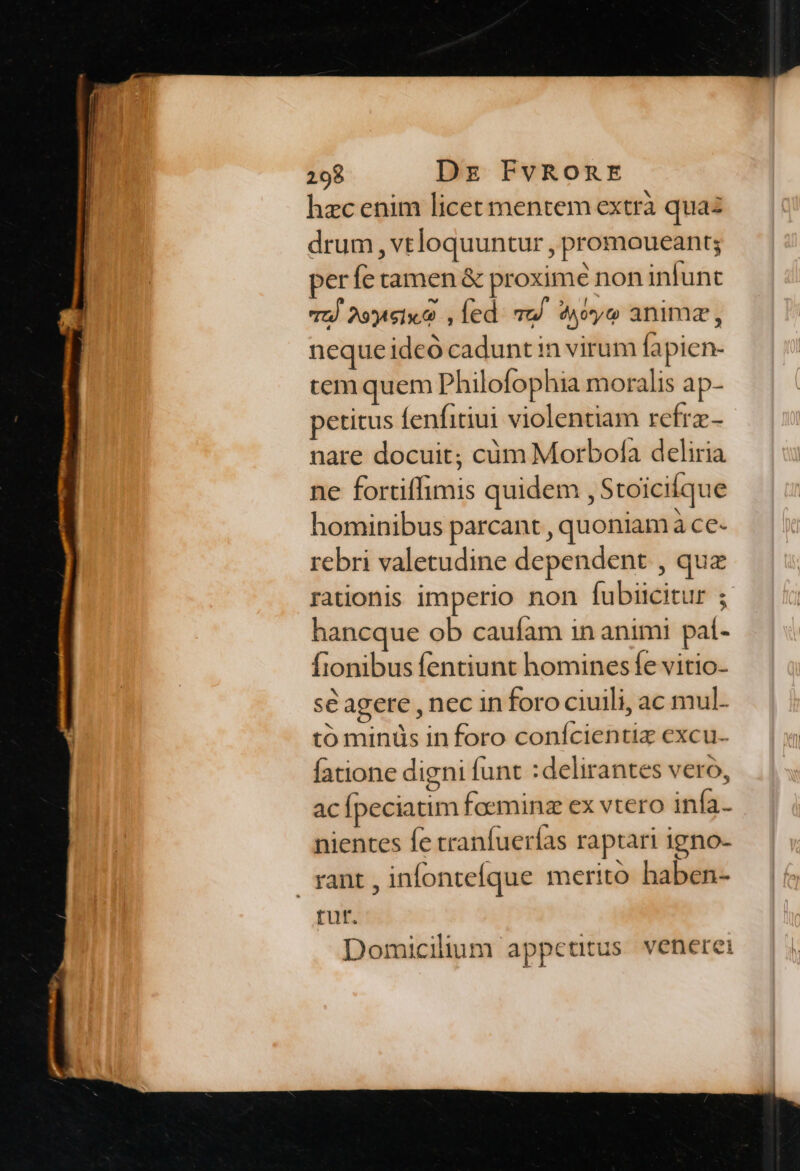 298 DE FVRORE
hæc enim licet mentem extrà qua-
drum, vt loquuntur, promoueant;
per ſe tamen & proximè non inſunt
τῷ λογιϛικῷ, ſed τῷ ἀλόγῳ animæ,
neque ideò cadunt in virum ſapien-
tem quem Philoſophia moralis ap-
petitus ſenſitiui violentiam refræ-
nare docuit; cùm Morboſa deliria
ne fortiſſimis quidem, Stoïciſque
hominibus parcant, quoniam à ce-
rebri valetudine dependent, quæ
rationis imperio non ſubiicitur;
hancque ob cauſam in animi paſ-
ſionibus ſentiunt homines ſe vitio-
sè agere, nec in foro ciuili, ac mul-
tò minùs in foro conſcientiæ excu-
ſatione digni ſunt: delirantes verò,
ac ſpeciatim fœminæ ex vtero inſa-
nientes ſe tranſuerſas raptari igno-
rant, inſonteſque meritò haben-
tur.
Domicilium appetitus venerei